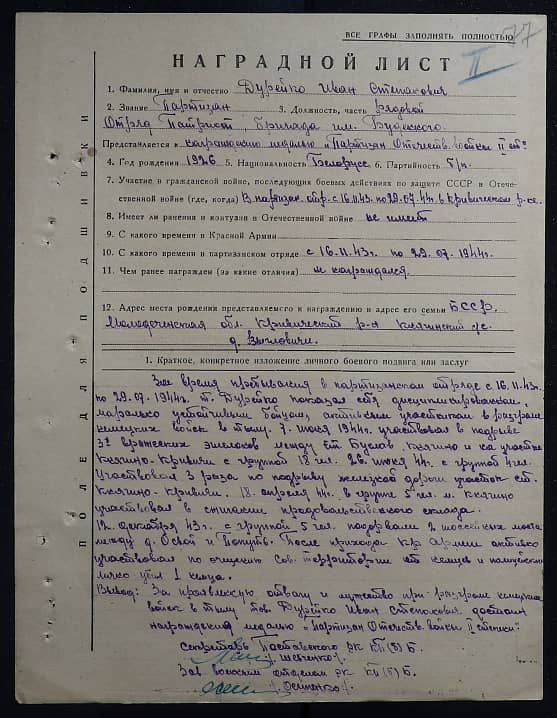 ВСЕ ГРАФЫ ЗАПОЛНЯТЬ ПОЛНОСТЬЮ
77
НАГРАДНОЙ ЛИСТ
II
1. Фамилия, имя и отчество Дурейко Иван Степанович
2. Звание Партизан 3. Должность, часть рядовой
Отряд Патриот, бригада им. Буденного.
Представляется к награждению медалью „Партизан Отечеств. войны II ст."
4. Год рождения 1926 5. Национальность Белорусс 6. Партийность б/п.
7. Участие в гражданской войне, последующих боевых действиях по защите СССР в Отече-
ственной войне (где, когда) В партизан. отр. с 16.11.43г. по 29.07.44г. в Кривичском р-не.
8. Имеет ли ранения и контузии в Отечественной войне не имеет
9. С какого времени в Красной Армии
10. С какого времени в партизанском отряде с 16.11.43г. по 29.07.1944г.
11. Чем ранее награжден (за какие отличия) не награждался.
12. Адрес места рождения представляемого к награждению и адрес его семьи БССР,
Молодеченская обл. Кривичский р-н Княгинский с/с.
д.
1. Краткое, конкретное изложение личного боевого подвига или заслуг
За время пребывания в партизанском отряде с 16.11.43г.
по 29.07.1944г. т. Дурейко показал себя дисциплинированным,
морально устойчивым бойцом, активным участником в разгроме
немецких войск в тылу. 7 июня 1944г. участвовал в подрыве
3х вражеских эшелонов между ст. Буслов Княгино и на участке
Княгино-Кривичи с группой 18 чел. 26 июня 44г. с группой 4 чел.
Участвовал 3 раза по подрыву железной дороги участок ст.
Княгино-Кривичи. 18 апреля 44г. в группе 5 чел. м. Княгино
участвовал в сжигании продовольственного склада.
12 декабря 43г. с группой 5 чел. подорвали 2 шоссейных моста
между д. и. После прихода Кр. Армии активно
участвовал по очищению Сов. территории от немцев и полицейских
лично убил 1 немца.
Вывод: За проявленную отвагу и мужество при разгроме немецких
войск в тылу тов. Дурейко Иван Степанович достоин
награждения медалью „Партизан Отечеств. войны II степени".
Секретарь Поставского РК КП(б)Б.
/Шевченко/.
Зав. военным отделом РК КП(б)Б.
/Осипенко/.
ПОЛЕ ДЛЯ ПОДШИВКИ